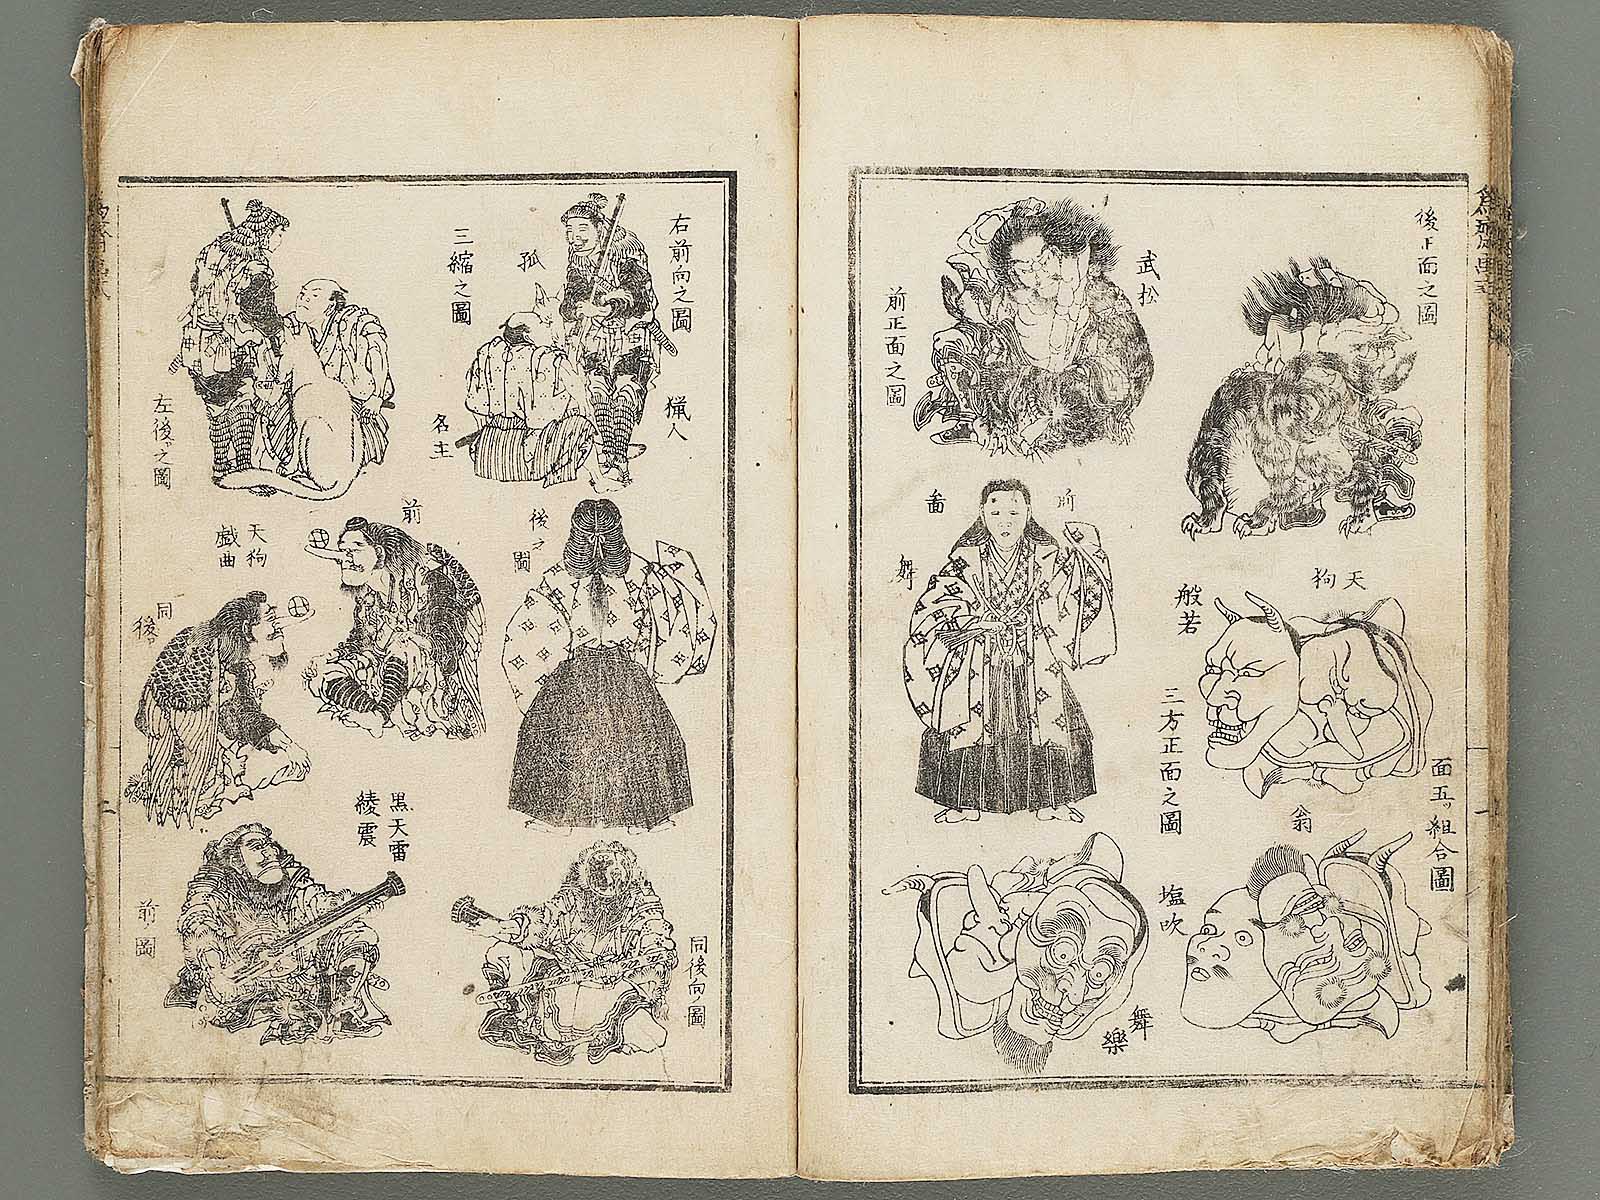 後正面之圖
武松
前正面之圖
天狗
般若
前
面
三方正面之圖
面五ッ組合圖
翁
塩吹
舞樂
右前向之圖
猟人
狐
三縮之圖
名主
左後之圖
後之圖
前
天狗
戯曲
同
後
黒天雷
綾震
同後向ノ圖
前ノ圖
二
一